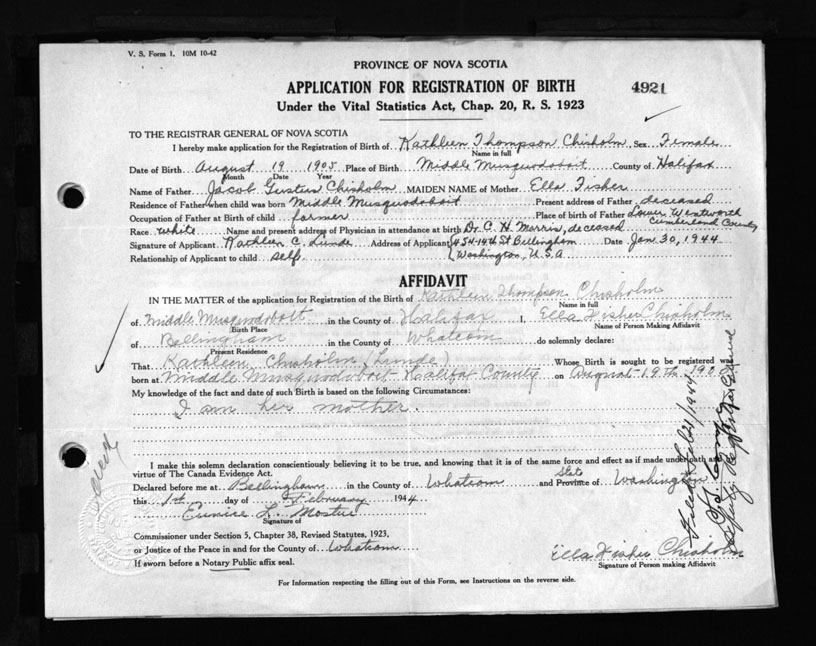 V. S. Form 1. 10M 10-42
PROVINCE OF NOVA SCOTIA
APPLICATION FOR REGISTRATION OF BIRTH 4921
Under the Vital Statistics Act, Chap. 20, R. S. 1923
TO THE REGISTRAR GENERAL OF NOVA SCOTIA
I hereby make application for the Registration of Birth of Kathleen Thompson Chisholm Sex Female
Name in full
Date of Birth August 19 1905 Place of Birth Middle Musquodoboit County of Halifax
Month Date Year
Name of Father Jacob Chisholm MAIDEN NAME of Mother Ella Fisher
Residence of Father when child was born Middle Musquodoboit Present address of Father deceased
Occupation of Father at Birth of child farmer Place of birth of Father Lower Wentworth
Cumberland County
Race white Name and present address of Physician in attendance at birth Dr C. H. Morris, deceased
Signature of Applicant Kathleen C. Lunde Address of Applicant 454-14th St Bellingham Date Jan 30, 1944
Relationship of Applicant to child self Washington, U.S.A
AFFIDAVIT
IN THE MATTER of the application for Registration of the Birth of Kathleen Thompson Chisholm
of Middle Musquodoboit in the County of Halifax I, Ella Fisher Chisholm
Birth Place Name of Person Making Affidavit
of Bellingham in the County of Whatcom do solemnly declare:
Present Residence
That Kathleen Chisholm (Lunde) Whose Birth is sought to be registered was
born at Middle Musquodoboit Halifax County on August 19th 1905
My knowledge of the fact and date of such Birth is based on the following Circumstances:
I am her mother.
I make this solemn declaration conscientiously believing it to be true, and knowing that it is of the same force and effect as if made under oath and by
virtue of The Canada Evidence Act.
State
Declared before me at Bellingham in the County of Whatcom and Province of Washington
this 1st day of February 1944
Eunice L.
Signature of
Commissioner under Section 5, Chapter 38, Revised Statutes, 1923,
or Justice of the Peace in and for the County of Whatcom
If sworn before a Notary Public affix seal.
Ella Fisher Chisholm
Signature of Person making Affidavit
For Information respecting the filling out of this Form, see Instructions on the reverse side.
Filed Feb 21/1944
Deputy Registrar General